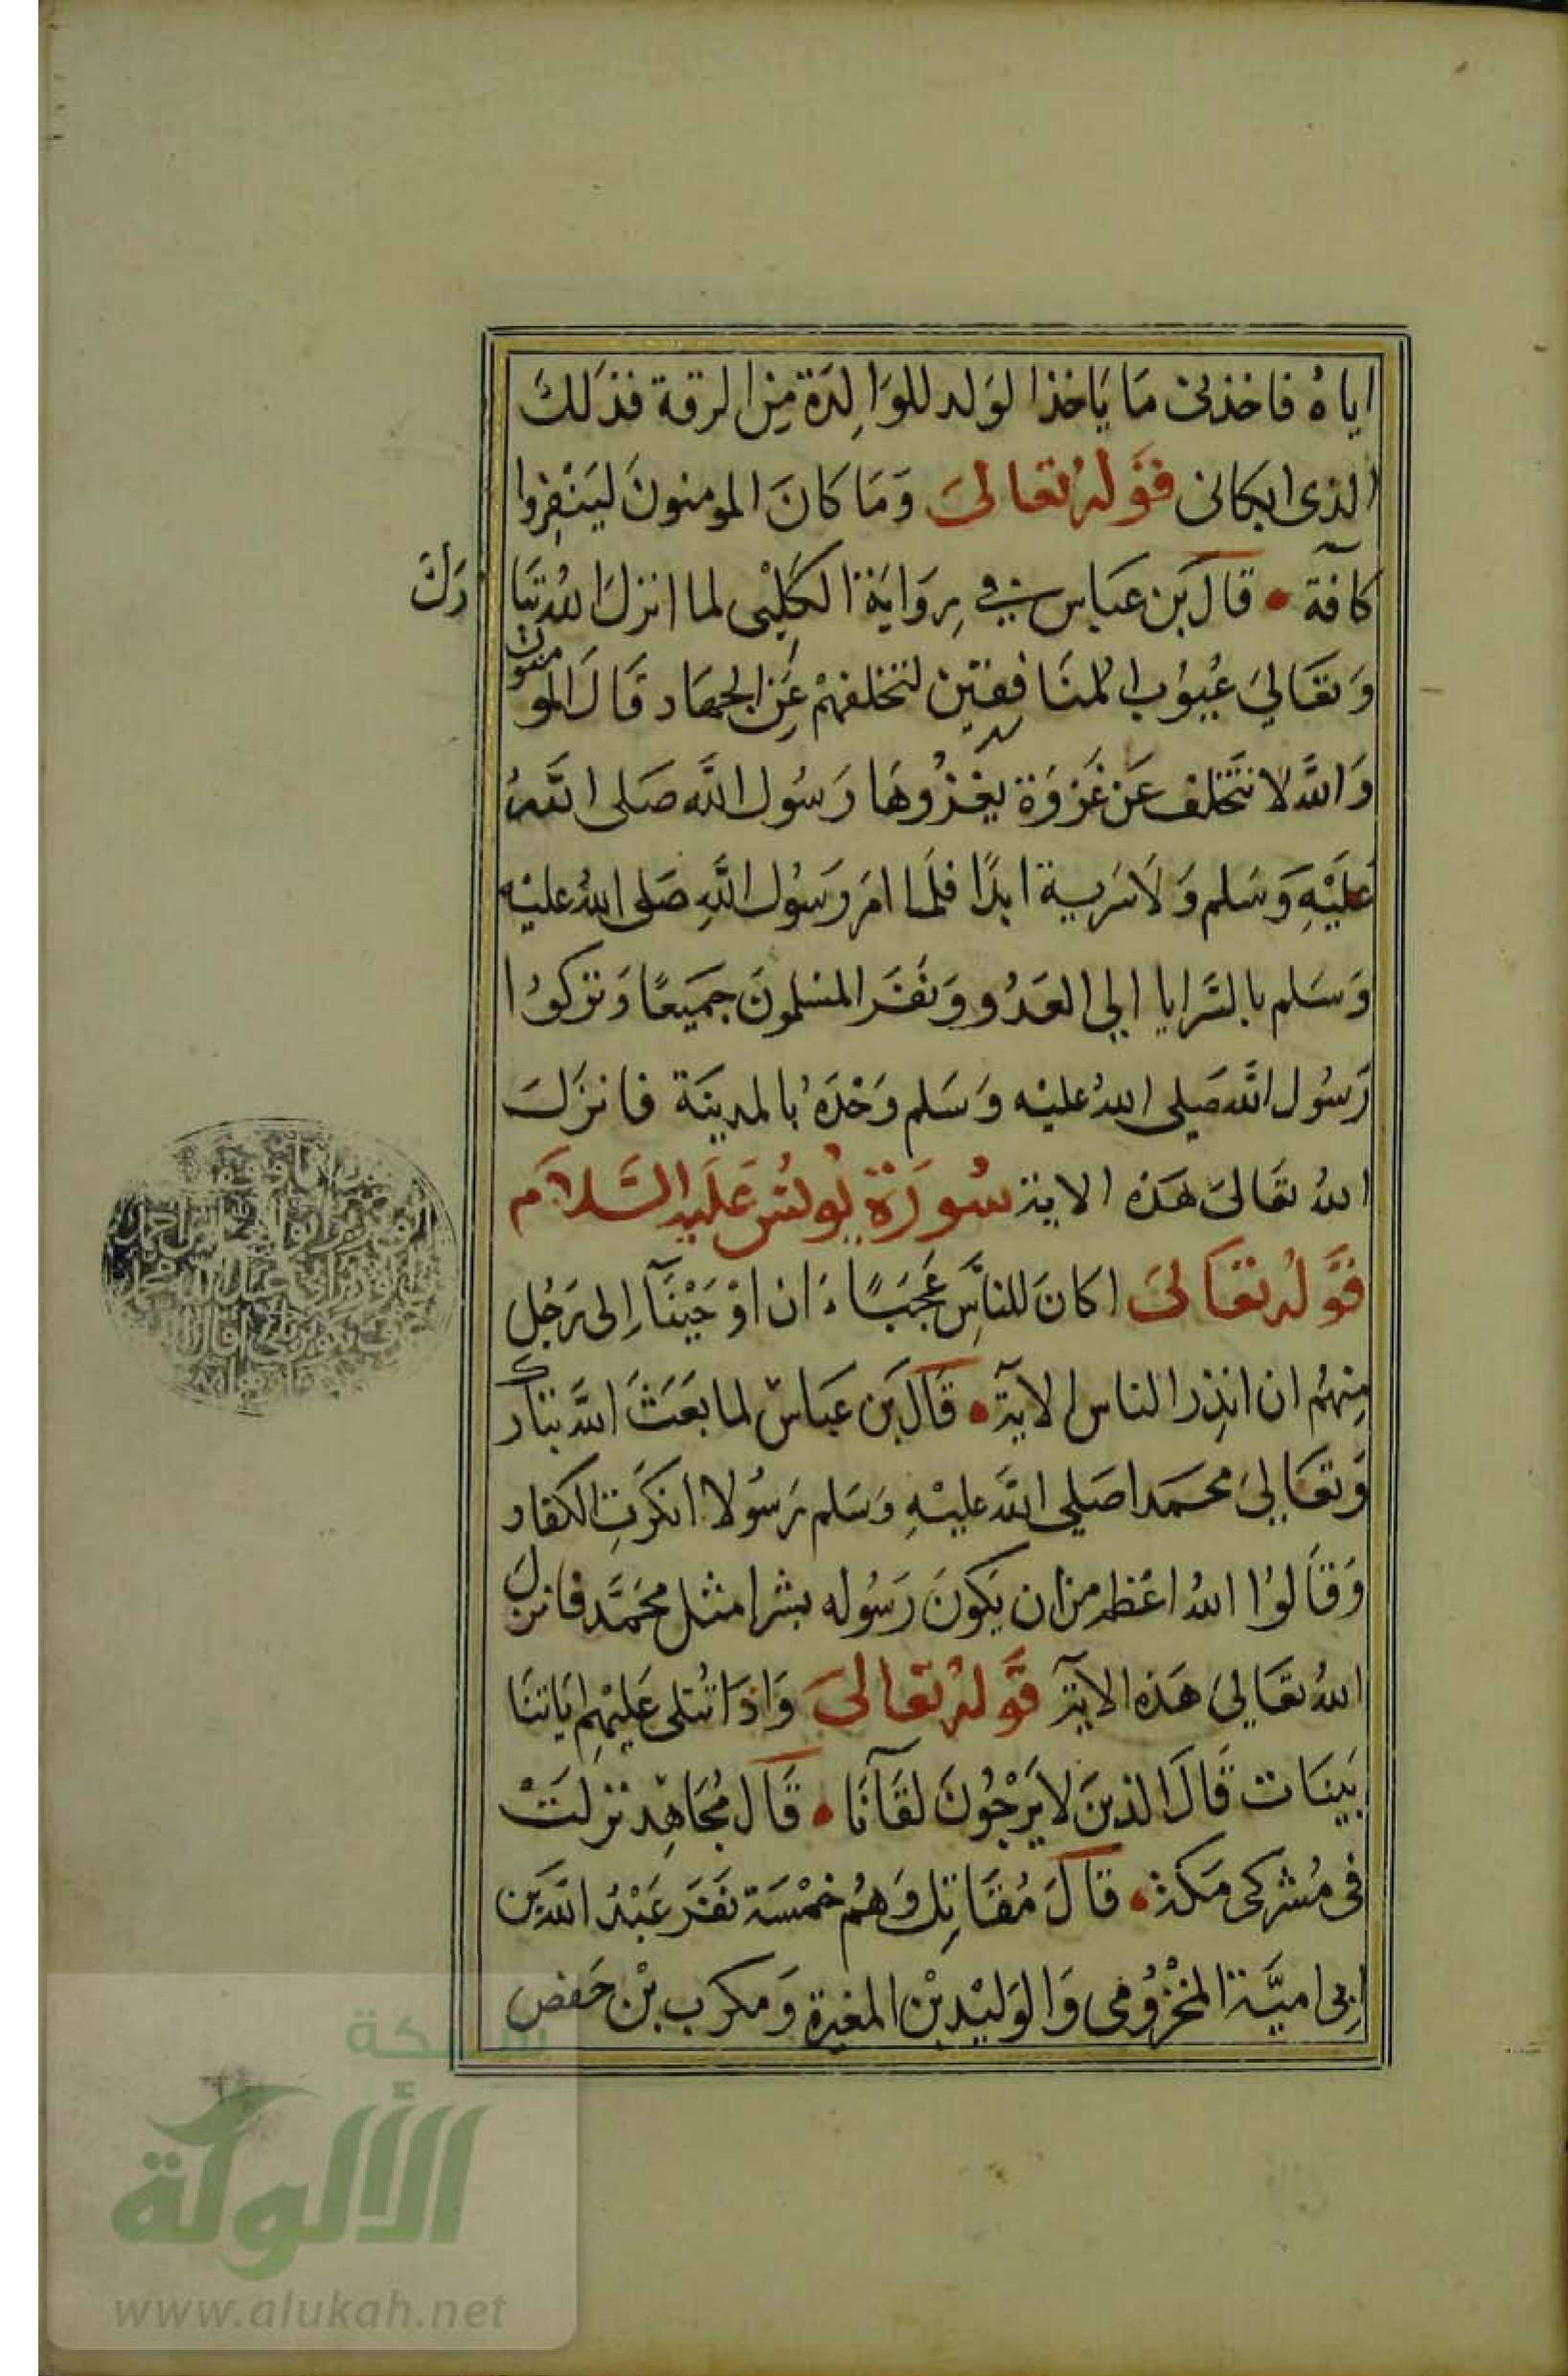 اياهُ فاخذنى مَا يَاخذ الوَلد للوَالِدَة مِن الرقة فذلكَ
الذى ابكانى قوله تعالىَ وَمَا كانَ المومنونَ ليَنْفِروا
كآفة قالَ بن عبَاس في رِوَايَة الكَلِبْى لما انزلَ اللهُ تبَا
رَكَ
وَتعَاليَ عُيوُب المنَافِقين لتخلفهمْ عَنِ الجهَاد قَالَ المومنون
وَاللهَّ لا نتَخلف عَن غَزوَة يغزُوهَا رَسُول اللَّه صَلى اللهُ
عَليْهِ وَسَلم وَلَاسَرية ابدًا فلمَا امَر رَسُول اللَّهِ صَلى اللهُ عليْه
وَسَلم بالسَّرايا الي العَدُو وَنفَرَ المسْلمونَ جمَيعًا وَتركوُا
رَسُول اللَّه صَلي اللهُ عليْه وَسَلم وَحْدَهُ بالمدينَة فانزَلَ
اللهُ تعَالىَ هَذه الاية سُورَة يُونُس عَلَيه السَّلَام
قوَّله تعَالىَ اكانَ للناَّسِ عَجَبًا ءَان اوْحَيْنَآ اِلى رَجُل
مِنهمُ ان انذِر الناس الآية قَالَ بن عَبَاسٌ لما بعَثَ اللهَّ تبَارك
وَتعَاليَ محَمدا صَلي اللهَّ عليْهِ وَسَلم رَسُولا انكرَتِ الكفار
وَقَالوُا اللهُ اعْظم من ان يَكونَ رَسُوله بشرا مثل محَمَّد فانزل
اللهُ تعَاليَ هَذه الآية قوَّله تعَالىَ وَاذَا تُتلى عَليْهِم ايَاتنَا
بَينَات قَالَ الذينَ لا يَرْجُونَ لقَآنَا قَالَ مُجَاهِد نزلَتْ
فى مُشركى مَكة قالَ مُقَاتِل وَهُم خمْسَة نفَر عَبْدُ اللَّه بَن
اَبِى اميَّة المخْزُومى وَالوَليْد بْن المغيرة وَمكرب بْن حَفص
شبكة
الألوكة
www.alukah.net